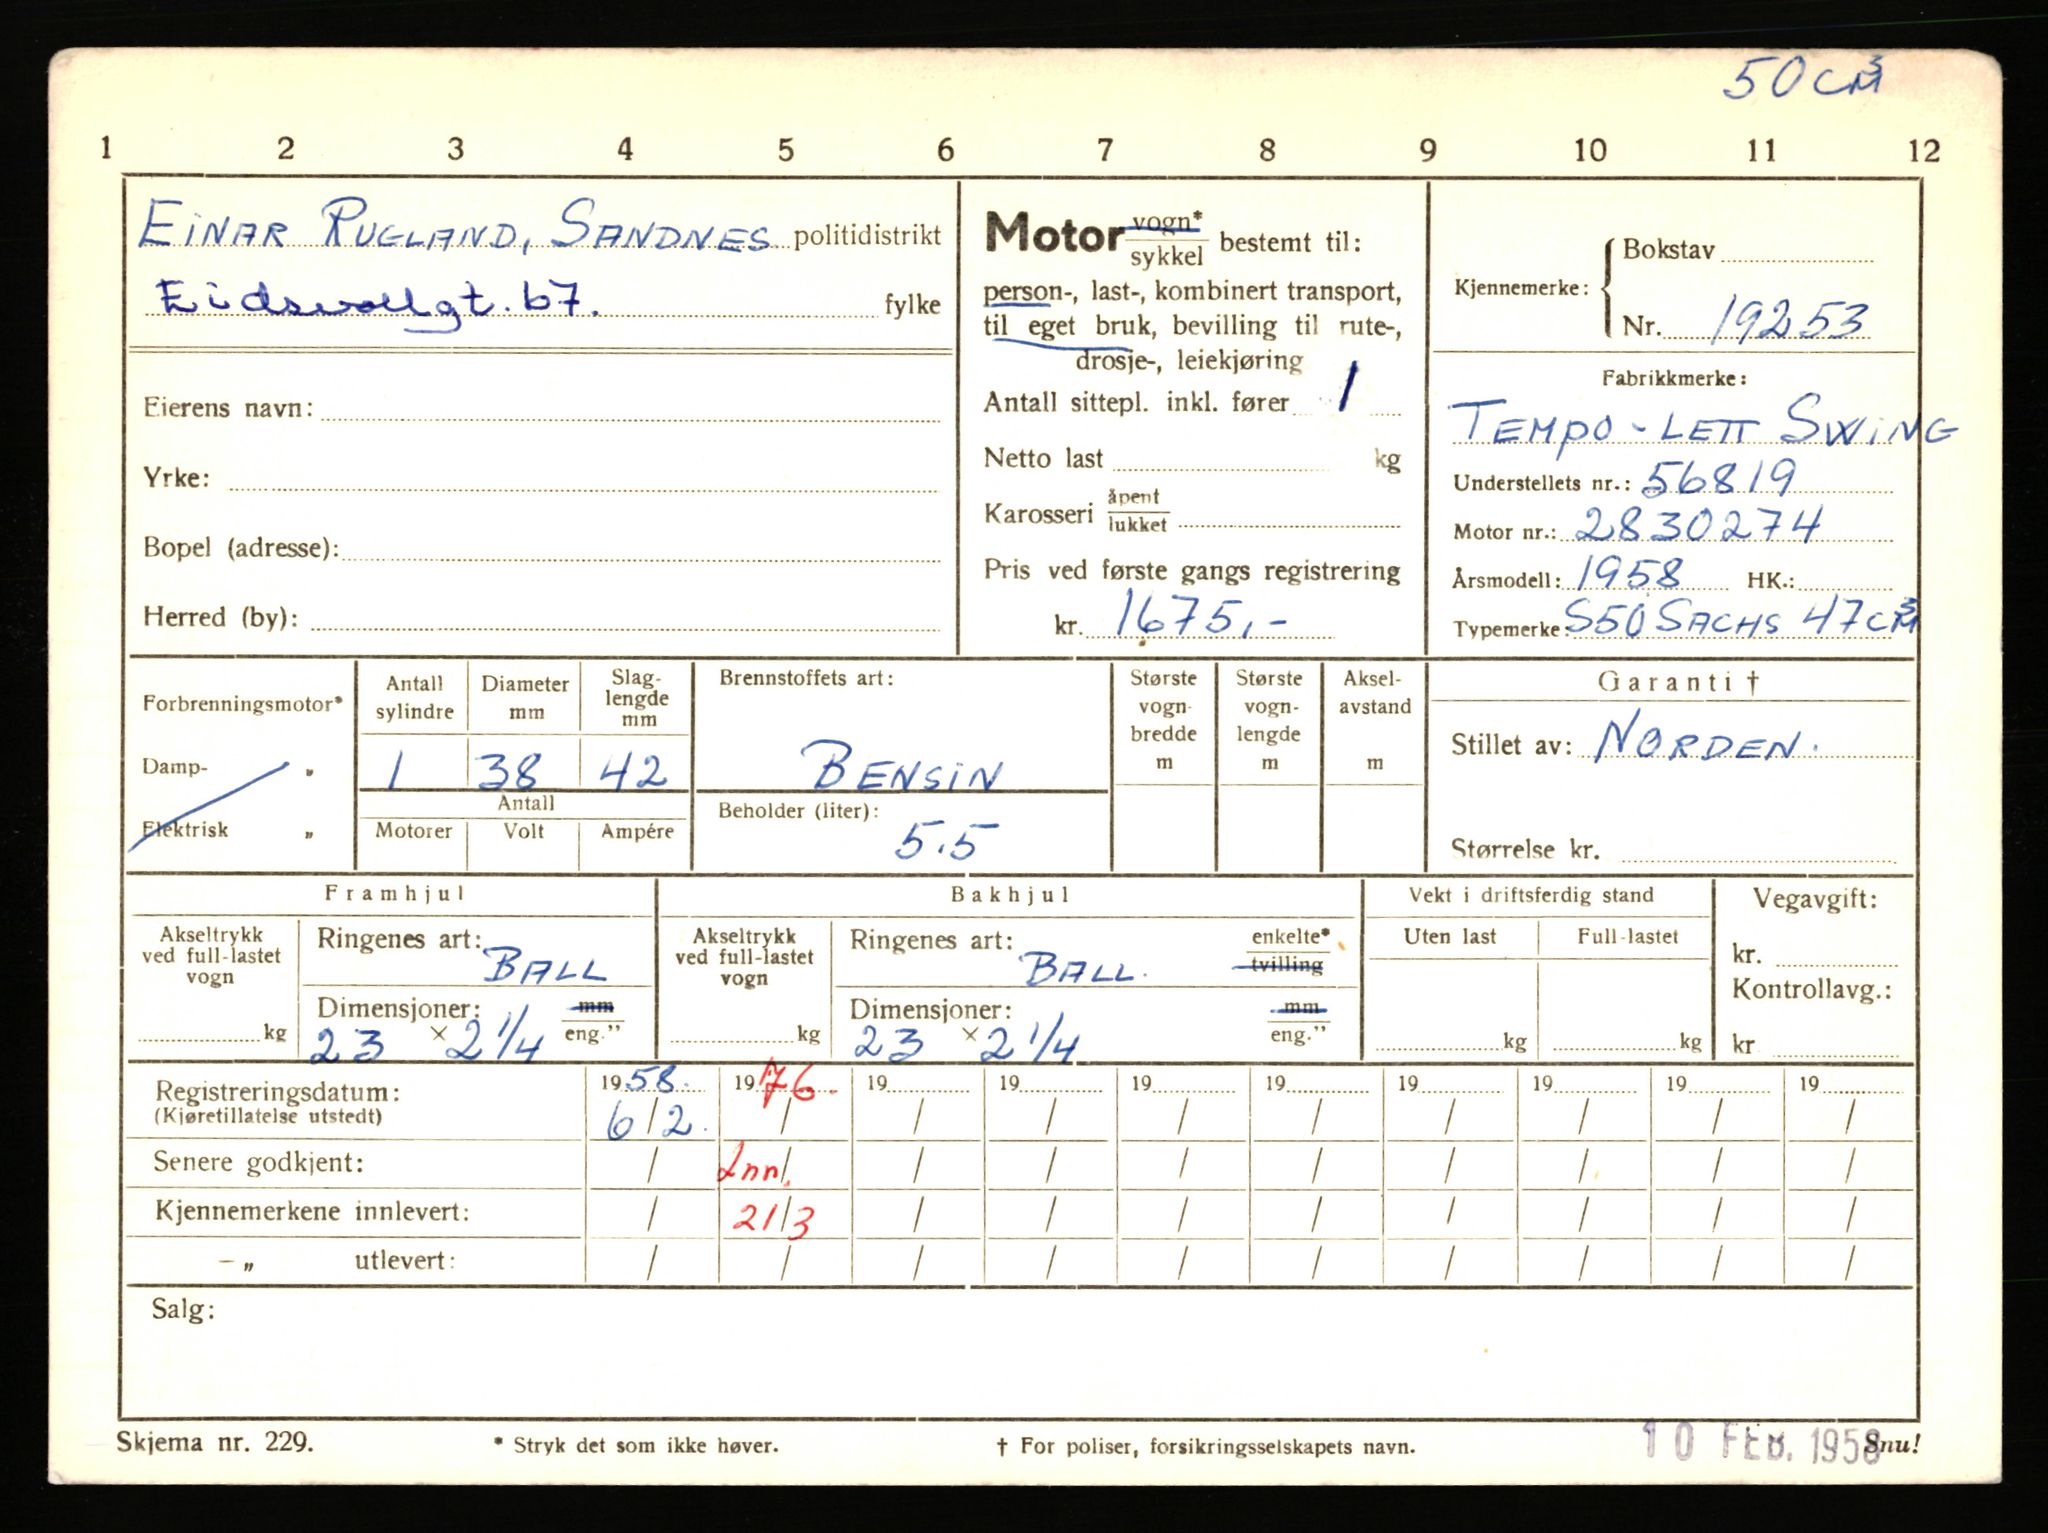 50 CM³
1 2 3 4 5 6 7 8 9 10 11 12
EINAR RUGLAND, SANDNES politidistrikt
Eidsvollgt. 67. fylke
Eierens navn:
Yrke:
Bopel (adresse):
Herred (by):
Motor vogn* / sykkel bestemt til:
person-, last-, kombinert transport,
til eget bruk, bevilling til rute-,
drosje-, leiekjøring
Antall sittepl. inkl. fører 1
Netto last kg
Karosseri åpent / lukket
Pris ved første gangs registrering
kr. 1675,-
Kjennemerke: Bokstav
Nr. 19253
Fabrikkmerke:
TEMPO - LETT SWING
Understellets nr.: 56819
Motor nr.: 2830274
Årsmodell: 1958 HK.:
Typemerke: S50 SACHS 47 CM³
Forbrenningsmotor*
Damp- „
Elektrisk „
Antall sylindre
Diameter mm
Slag-lengde mm
1 38 42
Antall
Motorer Volt Ampére
Brennstoffets art:
BENSIN
Beholder (liter):
5.5
Største vogn-bredde m
Største vogn-lengde m
Aksel-avstand m
Garanti †
Stillet av: NORDEN.
Størrelse kr.
Framhjul
Akseltrykk ved full-lastet vogn
kg
Ringenes art:
BALL
Dimensjoner: mm / eng.”
23 × 2 1/4
Bakhjul
Akseltrykk ved full-lastet vogn
kg
Ringenes art: enkelte* / tvilling
BALL.
Dimensjoner: mm / eng.”
23 × 2 1/4
Vekt i driftsferdig stand
Uten last Full-lastet
kg kg
Vegavgift:
kr.
Kontrollavg.:
kr
Registreringsdatum: 1958. 1976. 19 19 19 19 19 19 19 19
(Kjøretillatelse utstedt) 6/2. / / / / / / / / /
Senere godkjent: / Inn. / / / / / / / / /
Kjennemerkene innlevert: / 21/3 / / / / / / / /
— „ utlevert: / / / / / / / / / /
Salg:
Skjema nr. 229. * Stryk det som ikke høver. † For poliser, forsikringsselskapets navn. Snu!
10 FEB. 1958